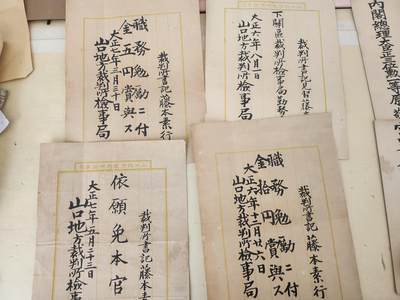 裁判所書記 藤本素行
職務勉勵ニ付
金五円賞與ス
大正七年三月三十日
山口地方裁判所檢事局
裁判所書記
下關區裁判所檢事局
大正六年八月一日
山口地方裁判所檢事局
内閣總理大臣正三位勲一等
裁判所書記 藤本
依願免本官
大正七年五月二十三日
山口地方裁判所檢事
裁判所書記 藤本素行
職務勉勵ニ付
金拾円賞與ス
大正六年十二月廿六日
山口地方裁判所檢事局